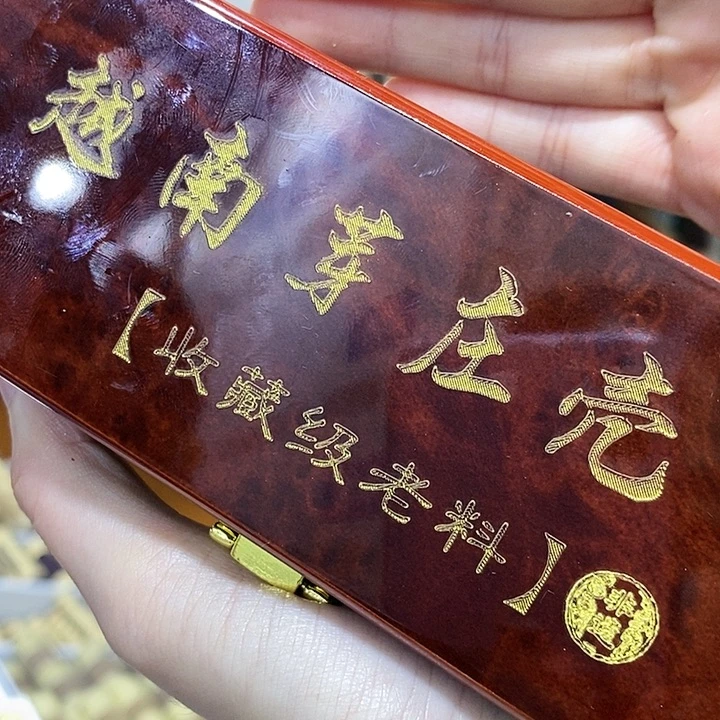 越南芽庄壳
【收藏级老料】